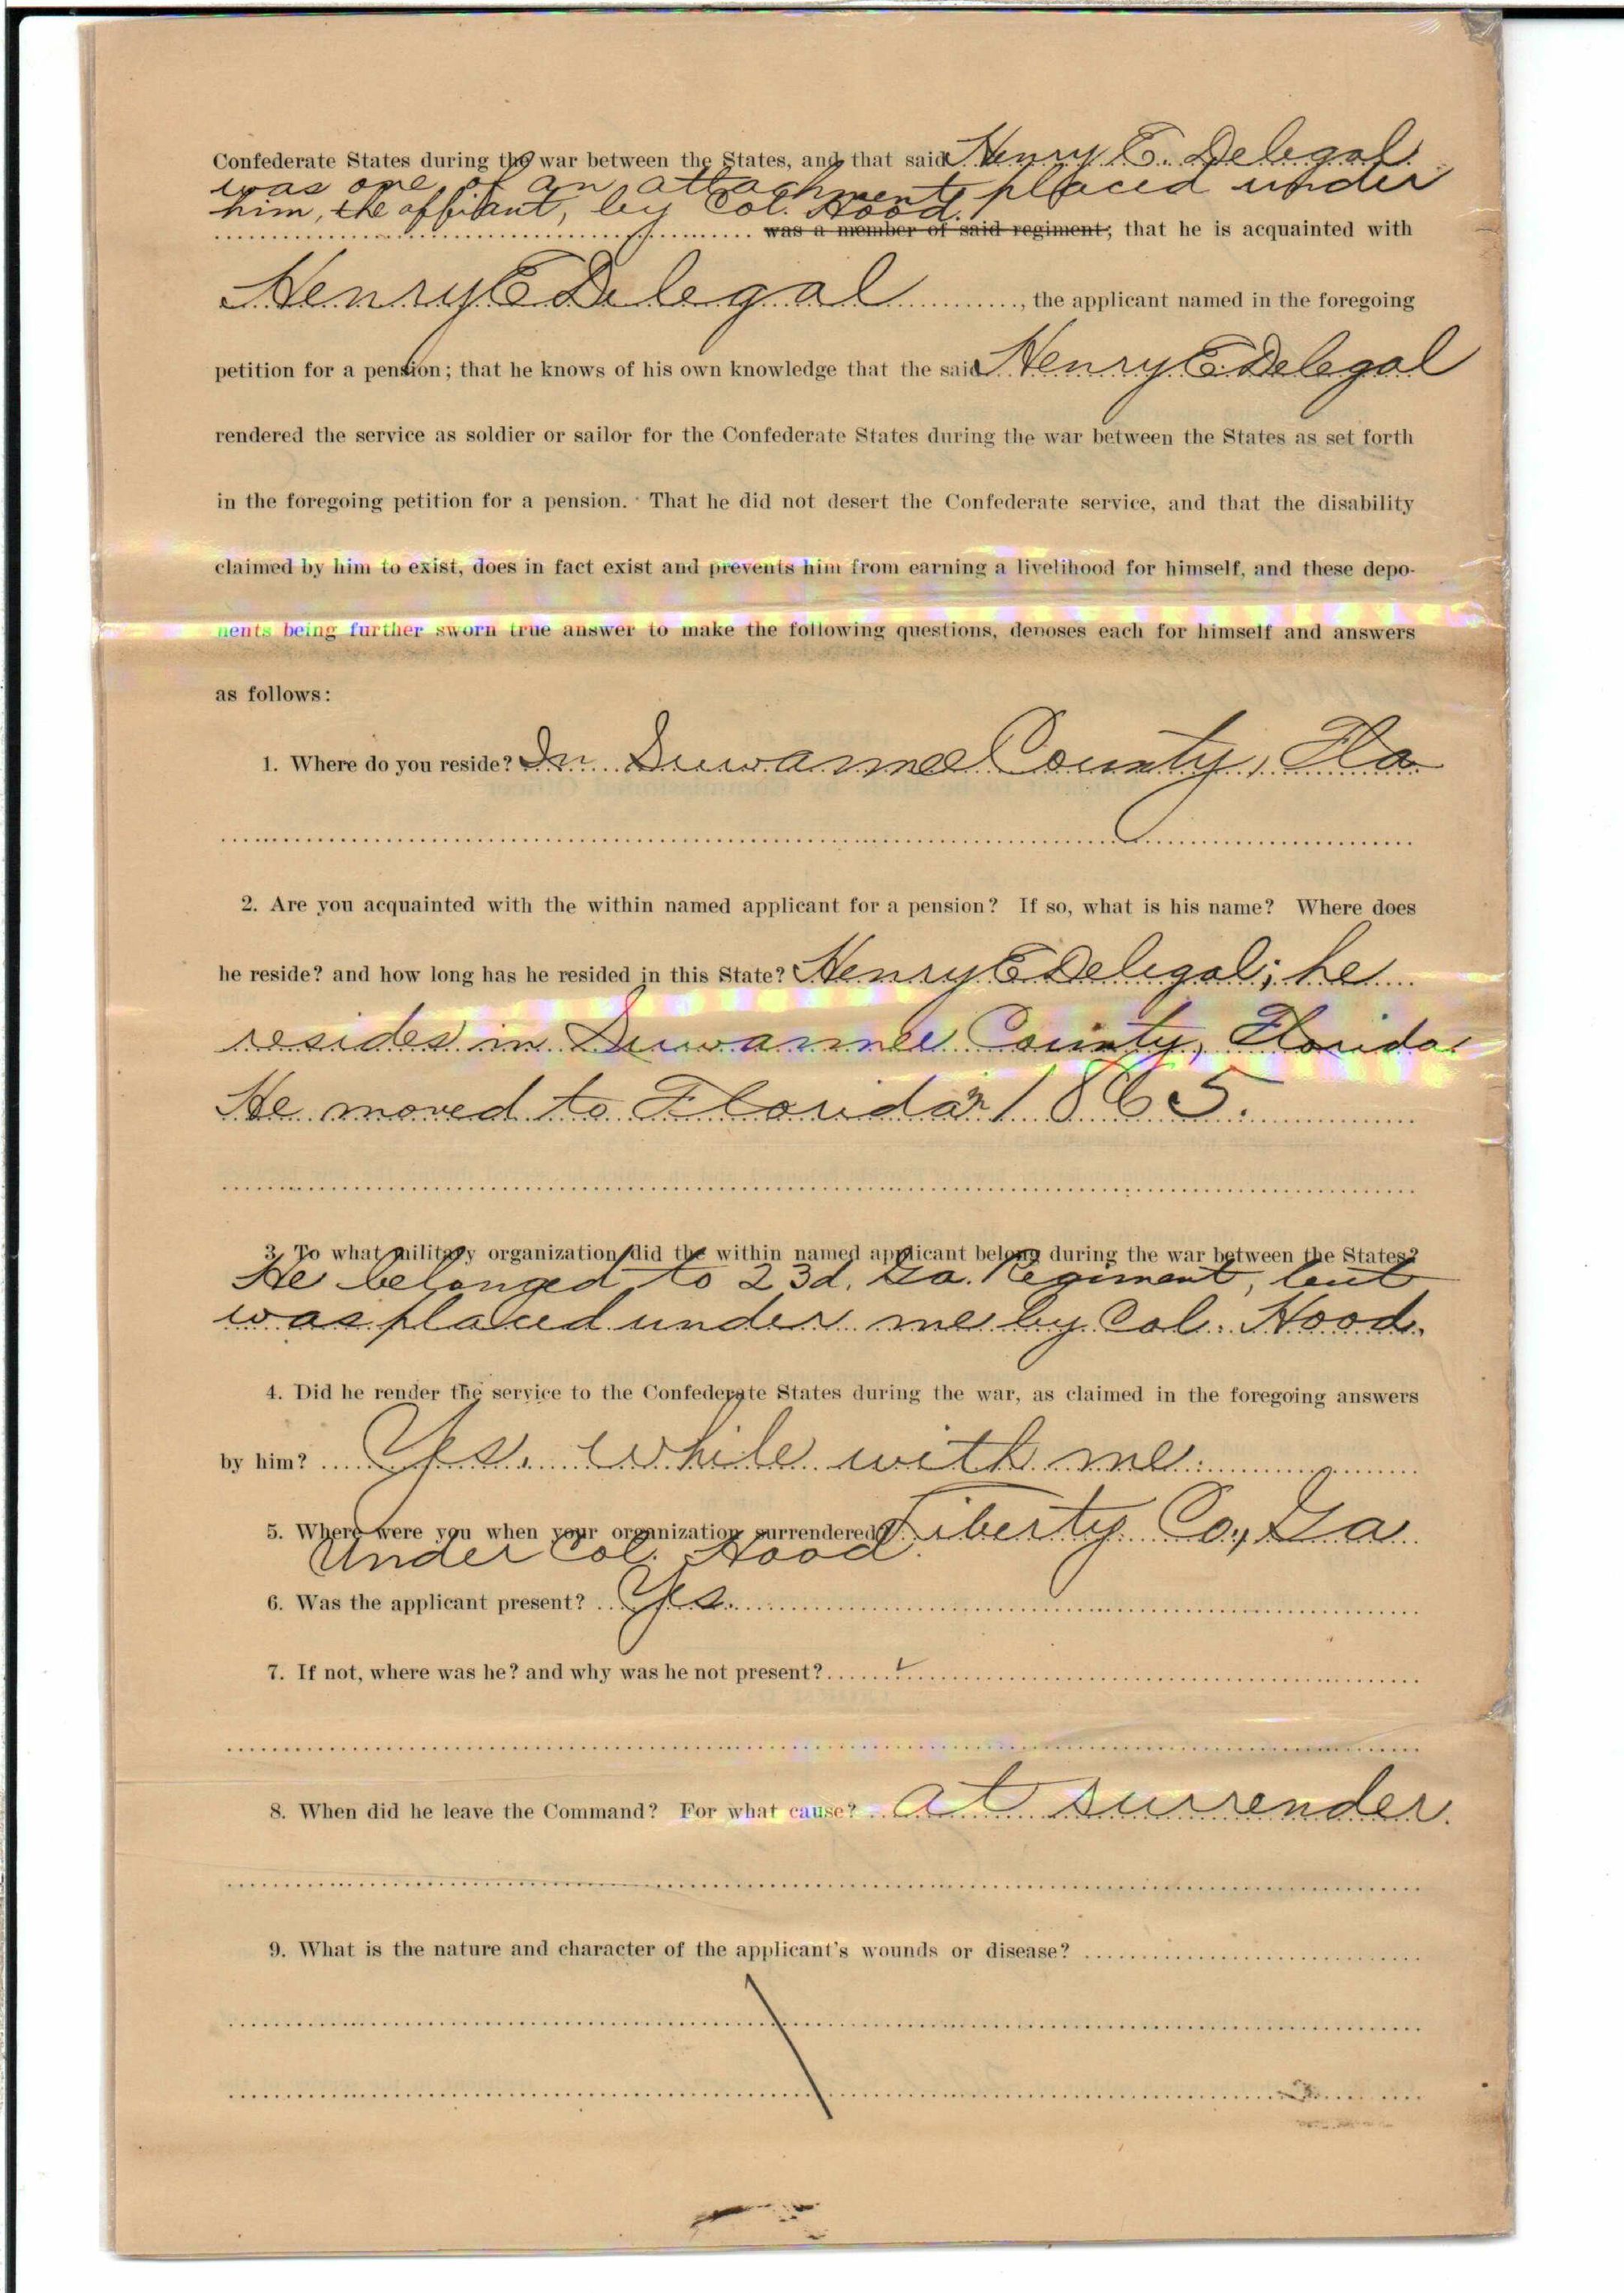 Confederate States during the war between the States, and that said Henry E. Delegal
was one of an attachment placed under
him, the affiant, by Col. Hood.
was a member of said regiment; that he is acquainted with
Henry E Delegal, the applicant named in the foregoing
petition for a pension; that he knows of his own knowledge that the said Henry E Delegal
rendered the service as soldier or sailor for the Confederate States during the war between the States as set forth
in the foregoing petition for a pension. That he did not desert the Confederate service, and that the disability
claimed by him to exist, does in fact exist and prevents him from earning a livelihood for himself, and these depo-
nents being further sworn true answer to make the following questions, deposes each for himself and answers
as follows:
1. Where do you reside? In Suwannee County, Fla
2. Are you acquainted with the within named applicant for a pension? If so, what is his name? Where does
he reside? and how long has he resided in this State? Henry E Delegal; he
resides in Suwannee County, Florida
He moved to Florida in 1865.
3. To what military organization did the within named applicant belong during the war between the States?
He belonged to 23d. Ga. Regiment, but
was placed under me by Col. Hood.
4. Did he render the service to the Confederate States during the war, as claimed in the foregoing answers
by him? Yes, while with me.
5. Where were you when your organization surrendered? Liberty Co., Ga
Under Col. Hood.
6. Was the applicant present? Yes.
7. If not, where was he? and why was he not present?
8. When did he leave the Command? For what cause? at surrender.
9. What is the nature and character of the applicant's wounds or disease?